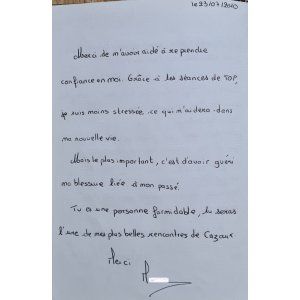 le 23/07/2010
Merci de m'avoir aidé à reprendre
confiance en moi. Grâce à les séances de TOP,
je suis moins stressée, ce qui m'aidera dans
ma nouvelle vie.
Mais le plus important, c'est d'avoir guéri
ma blessure liée à mon passé.
Tu es une personne formidable, tu seras
l'une de mes plus belles rencontres de Cazaux.
Merci